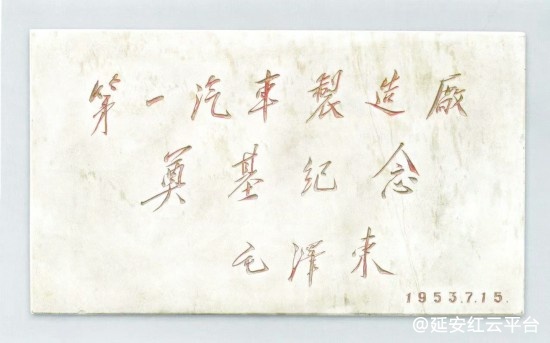 第一汽車製造廠
奠基纪念
毛泽东
1953.7.15.
@延安红云平台